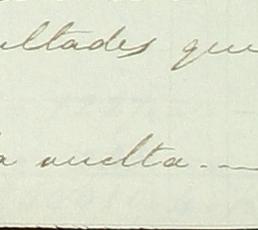 ultades que
a vuelta.__